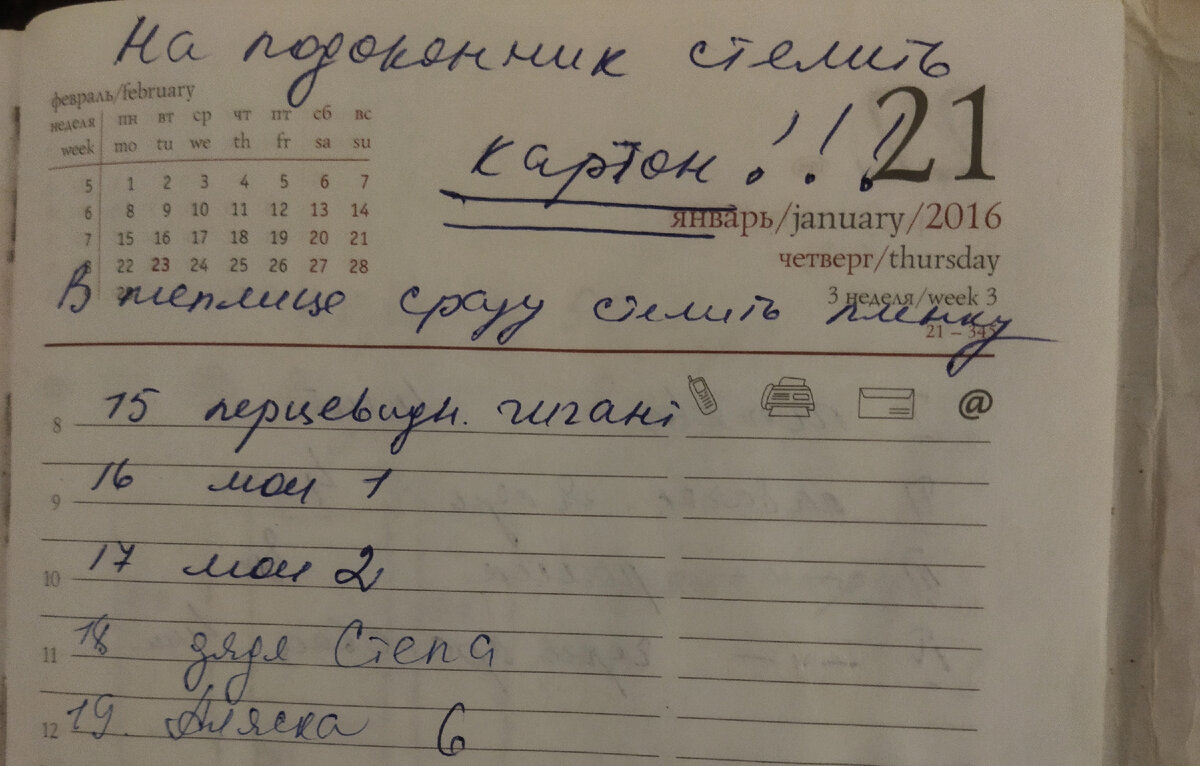 На подоконник стелить
февраль/february
неделя пн вт ср чт пт сб вс
week mo tu we th fr sa su
5 1 2 3 4 5 6 7
6 8 9 10 11 12 13 14
7 15 16 17 18 19 20 21
8 22 23 24 25 26 27 28
картон!!!
21
январь/january/2016
четверг/thursday
3 неделя/week 3
21 – 345
В теплице сразу стелить пленку
8 15 перцевидн. гигант
@
9 16 мои 1
10 17 мои 2
11 18 дядя Стёпа
12 19. Аляска 6